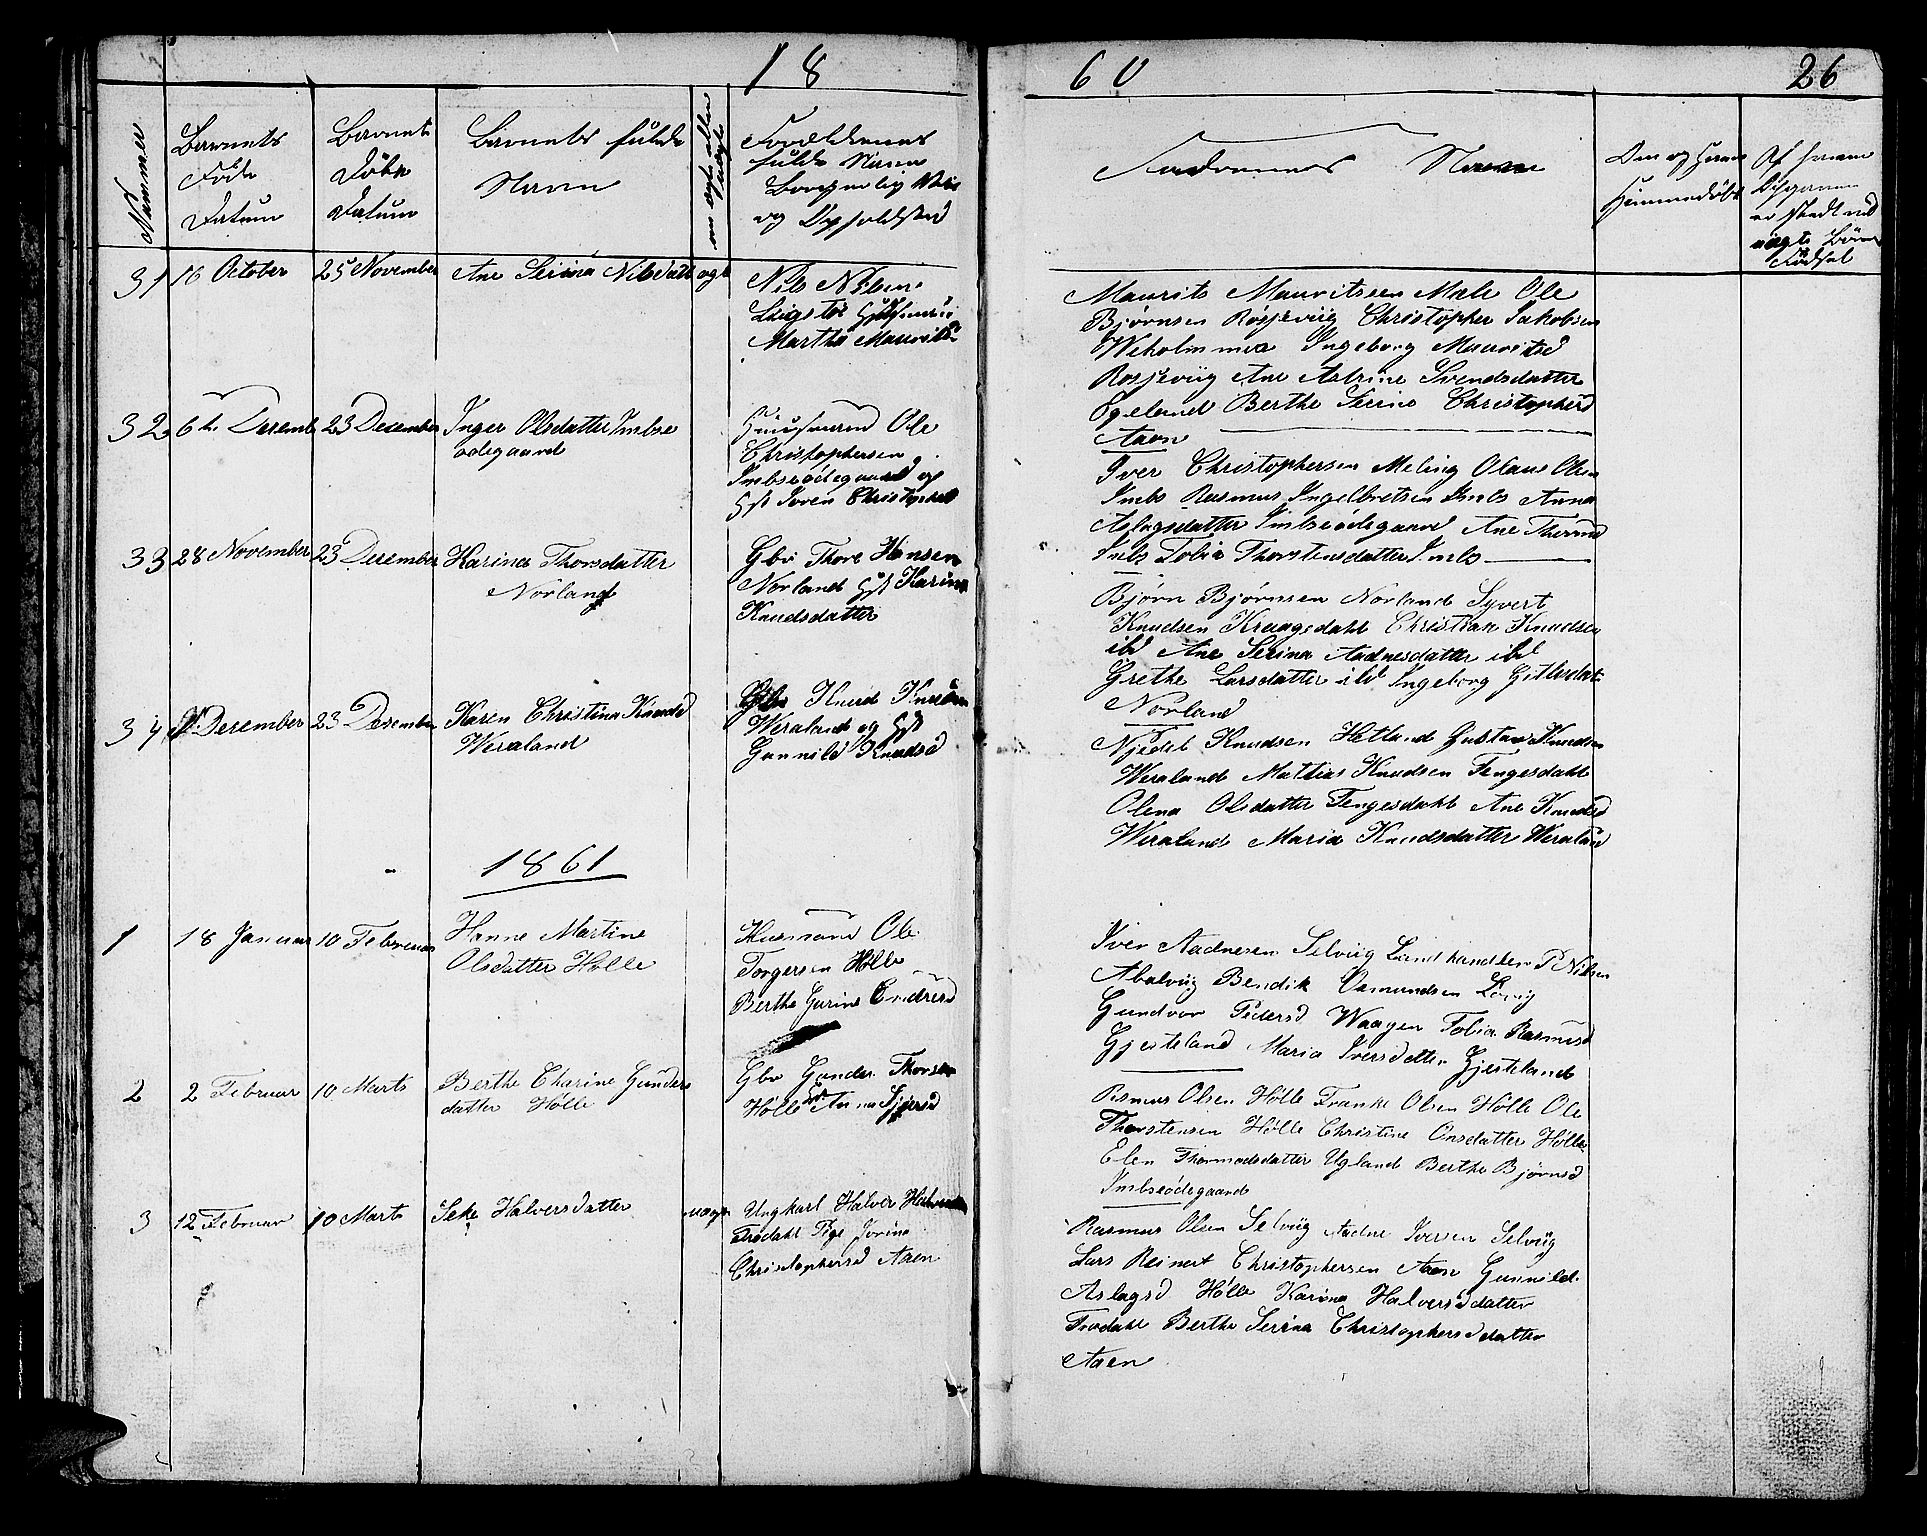 18
60
26
Nummer
Barnets
Føde
Datum
Barnets
Döbe
Datum
Barnets fulde
Navn
om egte eller
uegte
Forældrenes
fulde Navn
og Opholdsted
Faddernes Navn
Om og
Hjemmedöbt
31 16 October 25 November Ane Serina Nilsdatt egte
Nils Nilsen
Martha Maurits
Maurits Mauritsen Mæle Ole
Bjørnsen Rosjeviig Christopher Jakobsen
Ingeborg Mauritsd
Rosjeviig Ane Astrine Svendsdatter
Egeland Berthe Serine Christophersd
Aaen
32 6te Desemb 23 Desember Inger Olsdatter Imbse
ødegaard
Huusmand Ole
Christophersen
Imbseødegaard og
Hst Soren Christophersd
Iver Christophersen Meling Olaus Olsen
Imbs Rasmus Ingelbretsen Imbs Anna
Aslagsdatter Imbseødegaard Ane
Imbs Tobia Thorstensdatter Imbs
33 28 November 23 Desember Karina Thorsdatter
Norland
Gbr Thore Hansen
Norland Hst Karina
Knudsdatter
Bjørn Bjørnsen Norland Syvert
Knudsen Kraagedahl Christian Knudsen
ibd Ane Serina Aadnesdatter ibd
Grethe Larsdatter ibd Ingeborg
Norland
34 Desember 23 Desember Karen Christina Knudsd
Weraland
Gbr Knud Knudsen
Weraland og Hst
Gunnild Knudsd
Njedel Knudsen Hetland Gustav Knudsen
Weraland Mattias Knudsen Tengesdahl
Olena Olsdatter Tengesdahl Ane Knudsd
Weraland Maria Knudsdatter Weraland
1861
1 18 Januar 10 Februar Hanne Martine
Olsdatter Hølle
Huusmand Ole
Torgersen Hølle
Berthe Gurine Endresd
Iver Aadnesen Selviig Landhandler P Nilsen
Abelviig Bendik Osmundsen
Gundvor Pedersd Waagen Tobia Rasmusd
Gjesteland Maria Iversdatter Gjesteland
2 2 Februar 10 Marts Berthe Tharine Gunders
datter Hølle
Gbr Gunder Thorsen
Hølle Hst Anna
Rasmus Olsen Hølle Franke Olsen Hølle Ole
Thorstensen Hølle Christine Onsdatter Hølle
Elen Thormodsdatter Ugland Berthe Bjørnsd
Imbseødegaard
3 12 Februar 10 Marts Seke Halversdatter uegte
Ungkarl Halver
Frødahl Pige Jorine
Christophersd Aaen
Rasmus Olsen Selviig Aadne Iversen Selviig
Lars Reinert Christophersen Aaen Gunnild
Aslagsd Hølle Karina Halversdatter
Frødahl Berthe Serina Christophersdatter
Aaen